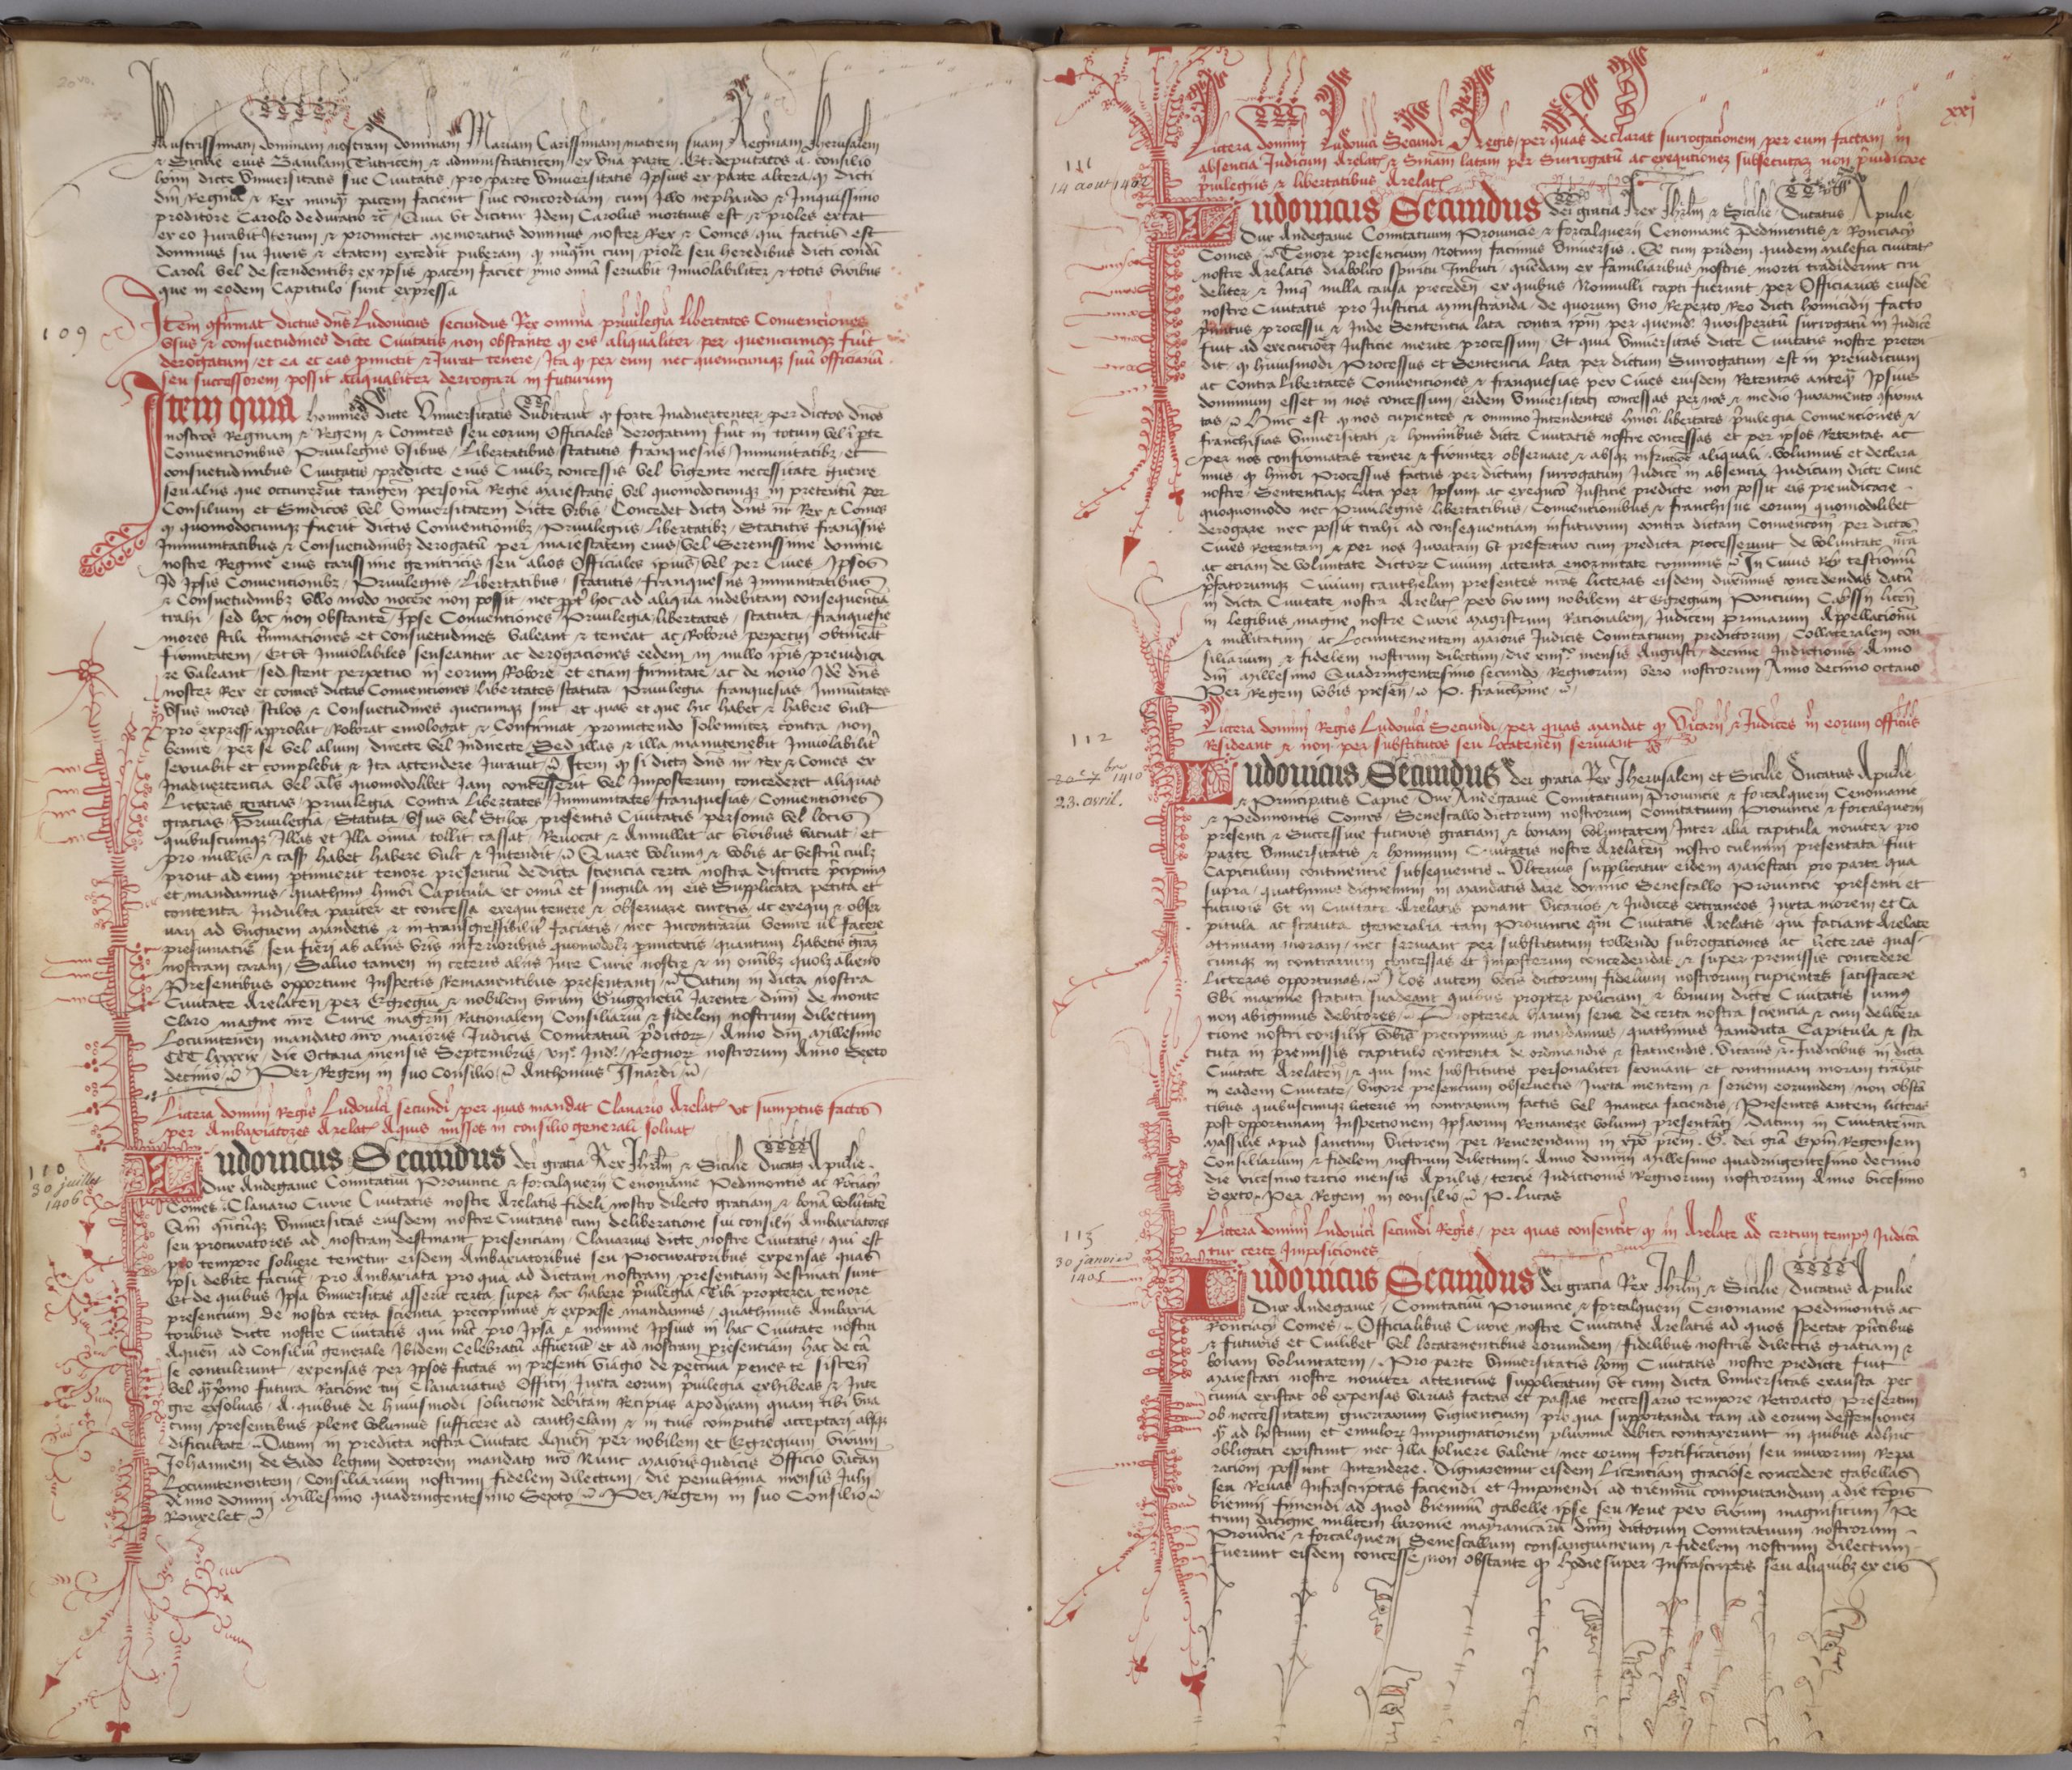 20 vo.
Illustrissimam dominam nostram dominam Mariam Carissimam matrem suam Reginam Jherusalem
et Sicilie eius Baiulam Tutricem et administratricem ex vna parte. Et deputatos a consilio
hoim dicte Vniuersitatis siue Ciuitatis pro parte Vniuersitatis ipsius ex parte altera, q dicti
dni Regina et Rex nunq pacem facient siue concordiam cum illo nephando et Iniquissimo
proditore Carolo de duratio
domnus sui Iuris et etatem excedit puberam
Caroli vel descendentibz ex ipsis pacem faciet ymo omia seruabit Inuiolabiliter et totis viribus
que in eodem Capitulo sunt expressa
109
Item 9firmat dictus dns Ludouicus secundus Rex omnia priuilegia libertates Conuenciones
vsus et consuetudines dicte Ciuitatis non obstante q eis aliqualiter per quemcumq fuit
derogatum, et ea et eis promictit et Iurat tenere, Ita q per eum nec quemcumq suu officiariu
seu successorem possit aliqualiter derrogari in futurum
Item quia homines dicte Vniuersitatis dubitant q forte Inaduertenter per dictos dnos
nostros Reginam et Regem et Comites seu eorum Officiales derogatum fuit in totum vel i pte
Conuencionibus Priuilegiis vsibus Libertatibus statutis franquesiis Immunitatibz et
consuetudinibus Ciuitatis predicte eius Ciuibz concessis vel vigente necessitate guerre
Consilium et Sindicos vel Vniuersitatem dicte vrbis, Concedet dictus dns nr Rex et Comes
q quomodocumq fuerit dictis Conuencionibz Priuilegiis Libertatibz Statutis franquesiis
Immunitatibus et Consuetudinibz derogatu per maiestatem eius vel Serenissime domine
nostre Regine eius carissime genitricis seu alios Officiales ipius vel per Ciues Ipsos
Id Ipsis Conuencionibz Priuilegiis Libertatibus statutis franquesiis Immunitatibus
et Consuetudinibz vllo modo nocere non possit
trahi sed hoc non obstante Ipse Conuenciones Priuilegia libertates statuta franquesie
firmitatem
re valeant sed stent perpetuo in eorum Robore et etiam firmitate ac de nouo Ide dns
noster Rex et comes dictas Conuenciones libertates statuta Priuilegia franquesias Immunitates
vsus mores stilos et Consuetudines quecumq sint et quas et que hic habet et habere vult
pro expressis approbat Roborat emologat et Confirmat promictendo solemniter contra non
venire per se vel alium directe vel Indirecte Sed illas et illa manutenebit Inuiolabilit
seruabit et complebit et Ita attendere Iurauit Item q si dictus dns nr Rex et Comes ex
Inaduertencia vel als quomodolibet Iam concesserit vel Imposterum concederet aliquas
Licteras gratias priuilegia Contra Libertates Immunitates franquesias Conuenciones
gracias Priuilegia Statuta vsus vel Stilos presentis Ciuitatis personis vel locis
quibuscumq Illas et Illa omia tollit cassat Reuocat et Annullat ac viribus vacuat et
pro nullis et cassis habet habere vult et Intendit Quare volumus et vobis ac vestru cuilz
prout ad eum ptinuerit tenore presenciu de dicta sciencia certa nostra districte pcipimus
et mandamus quathinus hmoi Capitula et omia et singula in eis Supplicata petita et
contenta Indulta pariter et concessa exequi tenere et obseruare
presumatis seu fieri ab aliis
nostram caram Saluo tamen in ceteris aliis Iure Curie nostre et in omibz quolz alieno
Presentibus opportune Inspectis Remanentibus presentanti Datum in dicta nostra
Ciuitate Arelaten per Egregiu et nobilem virum Guigonetu Iarente dnm de monte
Claro magne nre Curie magrm Rationalem Consiliariu et fidelem nostrum dilectum
Locumtenen mandato nro maioris Iudicis Comitatuu pdictor Anno dni millesimo
CCC lxxxiiij die Octaua mensis Septembris Regnor nostrorum Anno Sexto
decimo Per Regem in suo Consilio Anthonius Isnardi
Lictera domini Regis Ludouici secundi per quas mandat Clauario Arelat vt sumptus factos
per Ambaxiatores Arelat Aquis missos in consilio generali soluat
110
30 juillet
1406
Ludouicus Secundus dei gratia Rex Jhrlm et Sicilie Ducatus Apulie
Dux Andegauie Comitatuu Prouincie et forcalquerii Cenomanie Pedimontis ac Ronciaci
Comes Clauario Curie Ciuitatis nostre Arelatis fideli nostro dilecto gratiam et bona volutate
Vniuersitas eiusdem nostre Ciuitatis cum deliberatione sui consilii Ambaxiatores
seu procuratores ad nostram destinant presenciam Clauarius dicte nostre Ciuitatis qui est
pro tempore soluere tenetur eisdem Ambaxiatoribus seu Procuratoribus expensas quas
ipsi debite faciut pro Ambaxiata pro qua ad dictam nostram presentiam destinati sunt
Et de quibus Ipsa Vniuersitas asserit certa super hoc habere priuilegia Tibi propterea tenore
presencium de nostra certa sciencia precipimus et expresse mandamus quathinus Ambaxia
toribus dicte nostre Ciuitatis qui nuc pro Ipsa et nomine Ipsius in hac Ciuitate nostra
Aquen ad Consiliu generale Ibidem Celebratu affuerut et ad nostram presentiam hac de ca
se contulerunt expensas per Ipsos factas in presenti viagio de peccunia penes te sisten
vel q primo futura Ratione tui Clauariatus Officii Iuxta eorum priuilegia exhibeas et Inte
gre exsoluas A quibus de huiusmodi solucione debitam Recipias apodixam quam tibi vna
cum presentibus plene volumus sufficere ad cauthelam et in tuis computis acceptari absq
dificultate Datum in predicta nostra Ciuitate Aquen per nobilem et Egregium virum
Johannem de Sado legum doctorem mandato nro Nunc maioris Iudicis Officio vacan
Locumtenentem Consiliarium nostrum fidelem dilectum die penultima mensis Iulii
Anno domini millesimo quadringentesimo Sexto Per Regem in suo Consilio
Rouxelet
xxi
111
14 aout 1402
Lictera domini Ludouici Secundi Regis per quas declarat surrogacionem per eum factam in
absencia Iudicum Arelat et Sniam latam per Surrogatu ac exequtionez subsecutaz non preiudicare
priuilegiis et libertatibus Arelat
Ludouicus Secundus dei gracia Rex Jhrlm et Sicilie Ducatus Apulie
Dux Andegauie Comitatuum Prouincie et forcalquerii Cenomanie Pedimontis et Ronciacy
Comes Tenore presencium Notum facimus Vniuersis Q cum pridem quidem malefici ciuitat
nostre Arelatis diabolico spiritu Imbuti quedam ex familiaribus nostris morti tradiderint cru
deliter et Iniq nulla causa preceden ex quibus Nonnulli capti fuerunt per Officiarios eiusde
nostre Ciuitatis pro Iusticia ministranda de quorum vno Reperto Reo dicti homicidii facto
primitus processu et Inde Sentencia lata contra ipm per quemd Iurisperitu surrogatu in Iudice
fuit ad execucioez Iusticie mente processum Et quia Vniuersitas dicte Ciuitatis nostre preten
dit q huiusmodi Processus et Sentencia lata per dictum Surrogatum est in preiudicium
ac Contra libertates Conuenciones et franquesias per Ciues eiusdem Retentas anteq Ipsius
dominium esset in nos concessum eidem Vniuersitati concessas per nos et medio Iuramento 9firma
tas Hinc est q nos cupientes et omnino Intendentes hmoi libertates priuilegia Conuenciones et
franchisias Vniuersitati et hominibus dicte Ciuitatis nostre concessas et per ipsos Retentas ac
per nos confirmatas tenere et firmiter obseruare et absq infractione aliquali volumus et declara
mus q hmoi Processus factus per dictum surrogatum Iudice in absencia Iudicum dicte Curie
nostre Sentenciaq lata per Ipsum ac exequcio Iusticie predicte non possit eis preiudicare
quoquomodo nec Priuilegiis libertatibus Conuencionibus et franchisiis eorum quomodolibet
derogare nec possit trahi ad consequentiam infuturum contra dictam Conuencom per dictos
Ciues Retentam et per nos Iuratam vt prefertur cum predicta processerunt de voluntate nra
ac etiam de voluntate dictor Ciuium actenta enormitate criminis In Cuius Rey testimoniu
pfatorumq Ciuium cauthelam presentes nras licteras eisdem duximus concedendas datu
in dicta Ciuitate nostra Arelat per virum nobilem et Egregium Poncium Cayssii licen
in legibus magne nostre Curie magistrum Rationalem Iudicem primarum Appellacionu
et nullitatum ac Locumtenentem maioris Iudicis Comitatuum predictorum Collateralem con
siliarium et fidelem nostrum dilectum die mensis Augusti decime Indictionis Anno
dni millesimo Quadringentesimo secundo Regnorum vero nostrorum Anno decimo octauo
Per Regem vobis presen P. franchome
112
20e 7bre 1410
23. avril.
Lictera domini Regis Ludouici Secundi per quas mandat q Vicarii et Iudices in eorum officiis
Resideant et non per substitutos seu locatenen seruiant
Ludouicus Secundus dei gratia Rex Jherusalem et Sicilie Ducatus Apulie
et Principatus Capue Dux Andegauie Comitatuum Prouincie et forcalquerii Cenomanie
et Pedimontis Comes Senescallo dictorum nostrorum Comitatuum Prouincie et forcalquerii
presenti et Successiue futuris graciam et bonam voluntatem Inter alia capitula nouiter pro
parte Vniuersitatis et hominum Ciuitatis nostre Arelaten nostro culmini presentata fuit
Capitulum continencie subsequentis Vlterius supplicatur eidem maiestati pro parte qua
supra quathinus dignemini in mandatis dare domino Senescallo Prouincie presenti et
futuris vt in Ciuitate Arelatis ponant vicarios et Iudices extraneos Iuxta morem et Ca
pitula ac statuta generalia tam Prouincie qm Ciuitatis Arelatis qui faciant Arelate
9tinuam moram nec seruiant per substitutum tollendo subrogationes ac licteras quas
cumq in contrarium concessas et Imposterum concedendas et super premissis concedere
licteras opportunas Nos autem votis dictorum fidelium nostrorum cupientes satisfacere
vbi maxime statuta suadeant quibus propter policiam et bonum dicte Ciuitatis sumus
non abigimus debitores Propterea harum serie de certa nostra sciencia et cum delibera
cione nostri consilii vobis precipimus et mandamus quathinus Iamdicta Capitula et sta
tuta in premissis capitulo contenta de ordinandis et statuendis Vicariis et Iudicibus in dicta
Ciuitate Arelaten et qui sine substitutis personaliter seruiant et continuam moram trahat
in eadem Ciuitate vigore presencium obseruetis Iuxta mentem et seriem eorumdem non obsta
tibus quibuscumq licteris in contrarium factis vel Inantea faciendis Presentes autem licteras
post opportunam Inspectionem Ipsarum Remanere volumus presentati Datum in Ciuitate nra
Massilie apud sanctum Victorem per Reuerendum in xpo prem G. dei gra Epum Regensem
Consiliarium et fidelem nostrum dilectum Anno domini millesimo quadringentesimo decimo
die vicesimo tercio mensis Aprilis tercie Indictionis Regnorum nostrorum Anno vicesimo
Sexto Per Regem in consilio P. Lucas
113
30 janvier
1405
Lictera domini Ludouici secundi Regis per quas consentit q in Arelate ad certum tempus Iudica
tur certe Imposiciones
Ludouicus Secundus dei gracia Rex Jhrlm et Sicilie Ducatus Apulie
Dux Andegauie Comitatuu Prouincie et forcalquerii Cenomanie Pedimontis ac
Ronciacy Comes Officialibus Curie nostre Ciuitatis Arelatis ad quos spectat pntibus
et futuris et Cuilibet vel locatenentibus eorumdem fidelibus nostris dilectis graciam et
bonam voluntatem Pro parte Vniuersitatis hoim Ciuitatis nostre predicte fuit
maiestati nostre nouiter actencius supplicatum vt cum dicta Vniuersitas exausta pec
cunia existat ob expensas varias factas et passas neccessario tempore Retroacto Presertim
ob neccessitatem guerrarum viguencium pro qua supportanda tam ad eorum deffensionez
q ad hostium et emulor Impugnationem plurima debita contraxerunt in quibus adhuc
obligati existunt nec Illa soluere valent nec eorum fortificacioni seu murorum Repa
racioni possunt Intendere Dignaremur eisdem Licentiam graciose concedere gabellas
seu Reuas Infrascriptas faciendi et Imponendi ad trienniu computandum a die tepis
biennii finiendi ad quod bienniu gabelle ipse seu Reue per virum magnificum Pe
trum dacigne militem baronie dnm dictorum Comitatuum nostrorum
Prouincie et forcalquerii Senescallum consanguineum et fidelem nostrum dilectum
fuerunt eisdem concesse non obstante q hodie super Infrascriptis seu aliquibz ex eis